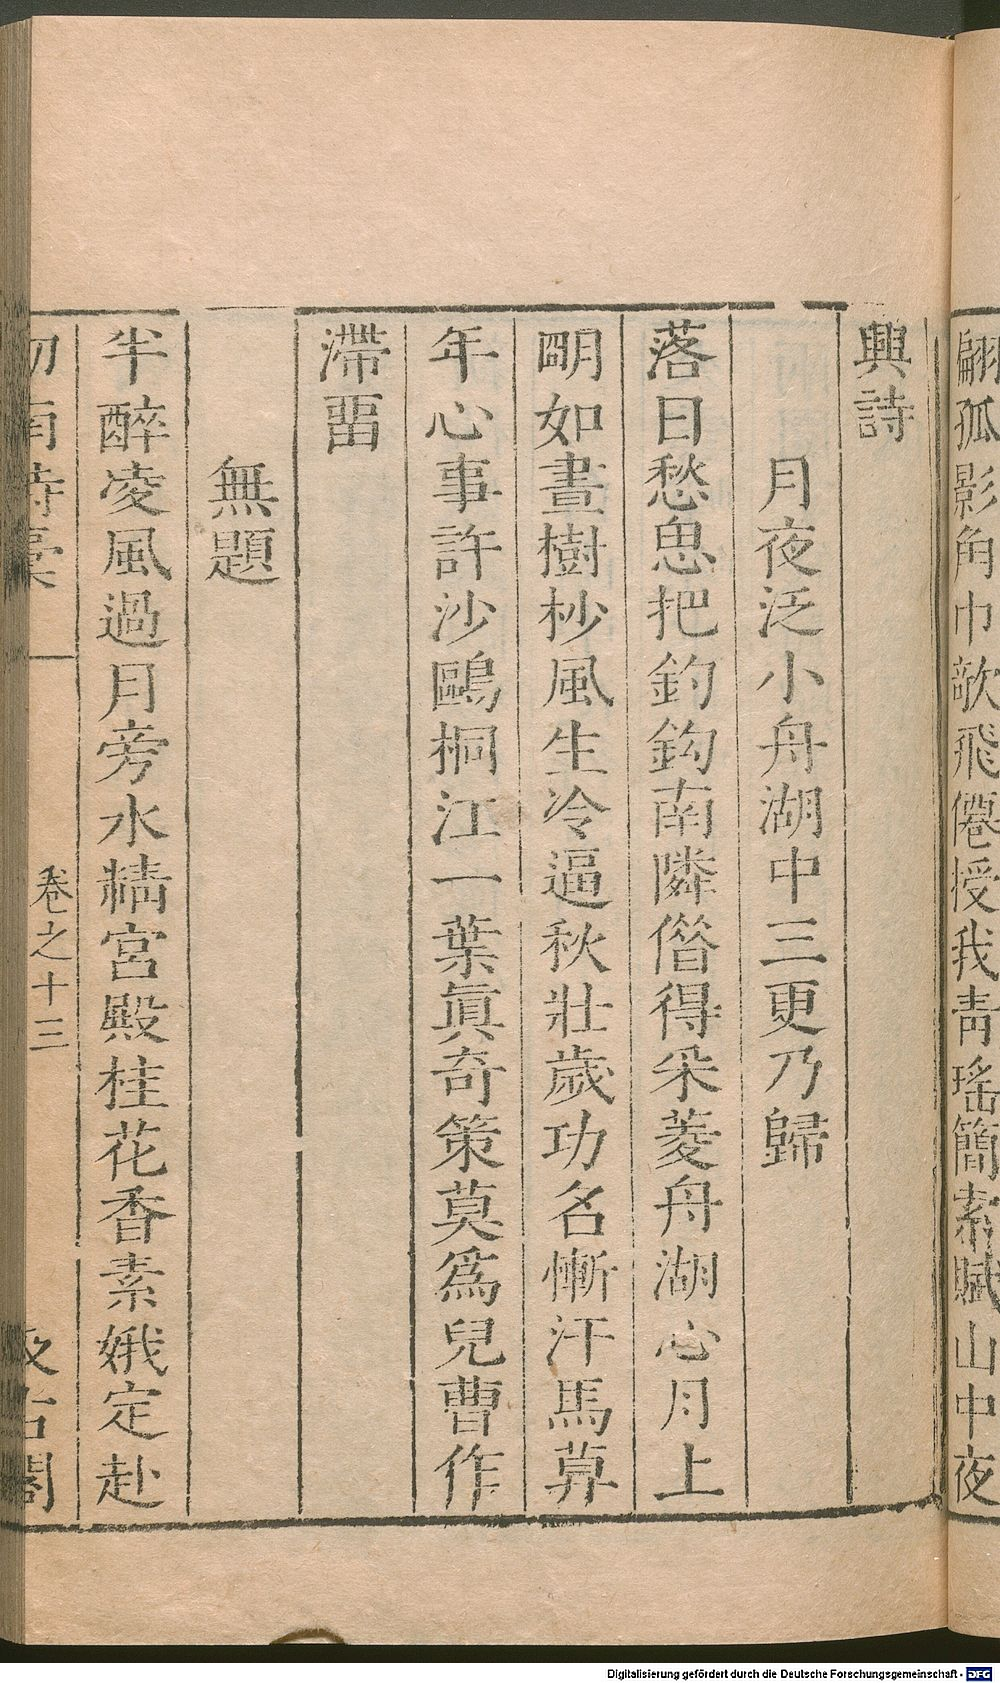 翩孤影角巾欹飛僊授我靑瑤簡素賦山中夜
興詩
月夜泛小舟湖中三更乃歸
落日愁思把釣鉤南隣僭得采菱舟湖心月上
朙如晝樹杪風生冷逼秋壯歲功名慚汗馬莫
年心事許沙鷗桐江一葉眞奇策莫爲兒曹作
滯畱
無題
半醉凌風過月旁水精宮殿桂花香素娥定赴
卷之十三
Digitalisierung gefördert durch die Deutsche Forschungsgemeinschaft - DFG